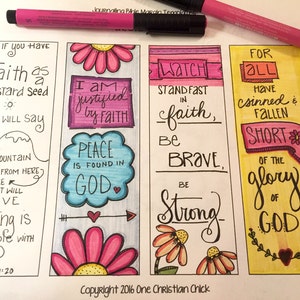 Journaling Bible Margin Templates
if you have
faith as a
mustard seed
will say
mountain
from here
e with
I am
justified
by faith
Peace
is found in
God
Watch
stand fast
in
faith,
be
brave,
be
strong.
For
all
have
sinned &
fallen
short
of the
glory
of
God
Copyright 2016 One Christian Chick